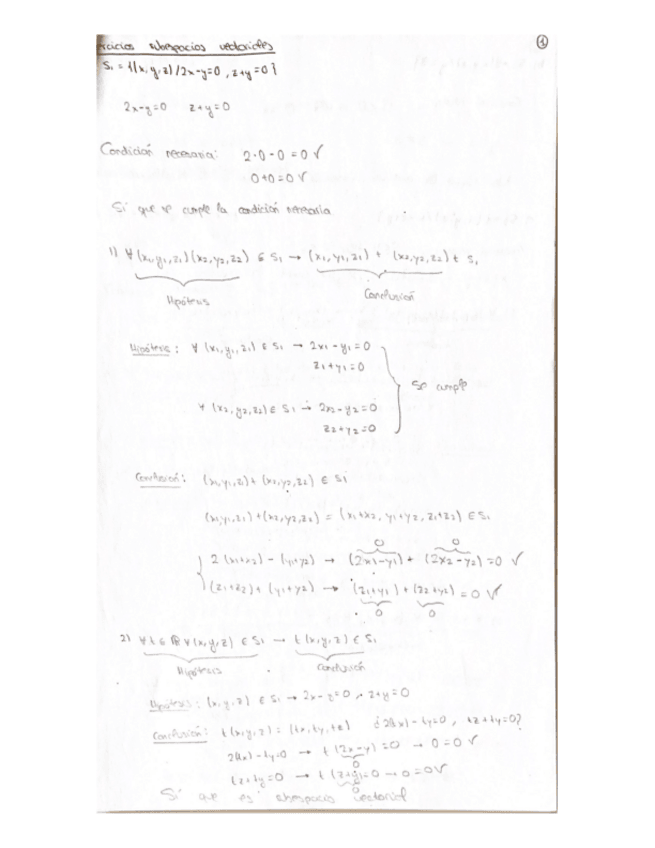 rcicios subespacios vectoriales
1
S₁ = {(x,y,z)/2x-y=0, z+y=0}
2x-y=0 z+y=0
Condición necesaria: 2·0-0=0 √
0+0=0 √
Sí que se cumple la condición necesaria
1) ∀(x₁,y₁,z₁)(x₂,y₂,z₂) ∈ S₁ → (x₁,y₁,z₁) + (x₂,y₂,z₂) ∈ S₁
Hipótesis Conclusión
Hipótesis: ∀ (x₁,y₁,z₁) ∈ S₁ → 2x₁-y₁=0
z₁+y₁=0
Se cumple
∀ (x₂,y₂,z₂) ∈ S₁ → 2x₂-y₂=0
z₂+y₂=0
Conclusión: (x₁,y₁,z₁)+(x₂,y₂,z₂) ∈ S₁
(x₁,y₁,z₁)+(x₂,y₂,z₂) = (x₁+x₂, y₁+y₂, z₁+z₂) ∈ S₁
0 0
2(x₁+x₂) - (y₁+y₂) → (2x₁-y₁) + (2x₂-y₂)=0 √
(z₁+z₂) + (y₁+y₂) → (z₁+y₁) + (z₂+y₂) = 0 √
0 0
2) ∀t ∈ ℝ ∀(x,y,z) ∈ S₁ → t(x,y,z) ∈ S₁
Hipótesis Conclusión
Hipótesis: (x,y,z) ∈ S₁ → 2x-z=0, z+y=0
Conclusión: t(x,y,z) = (tx,ty,tz) ¿2(tx)-ty=0, tz+ty=0?
2(tx)-ty=0 → t(2x-y)=0 → 0=0 √
0
tz+ty=0 → t(z+y)=0 → 0=0 √
0
Sí que es subespacio vectorial